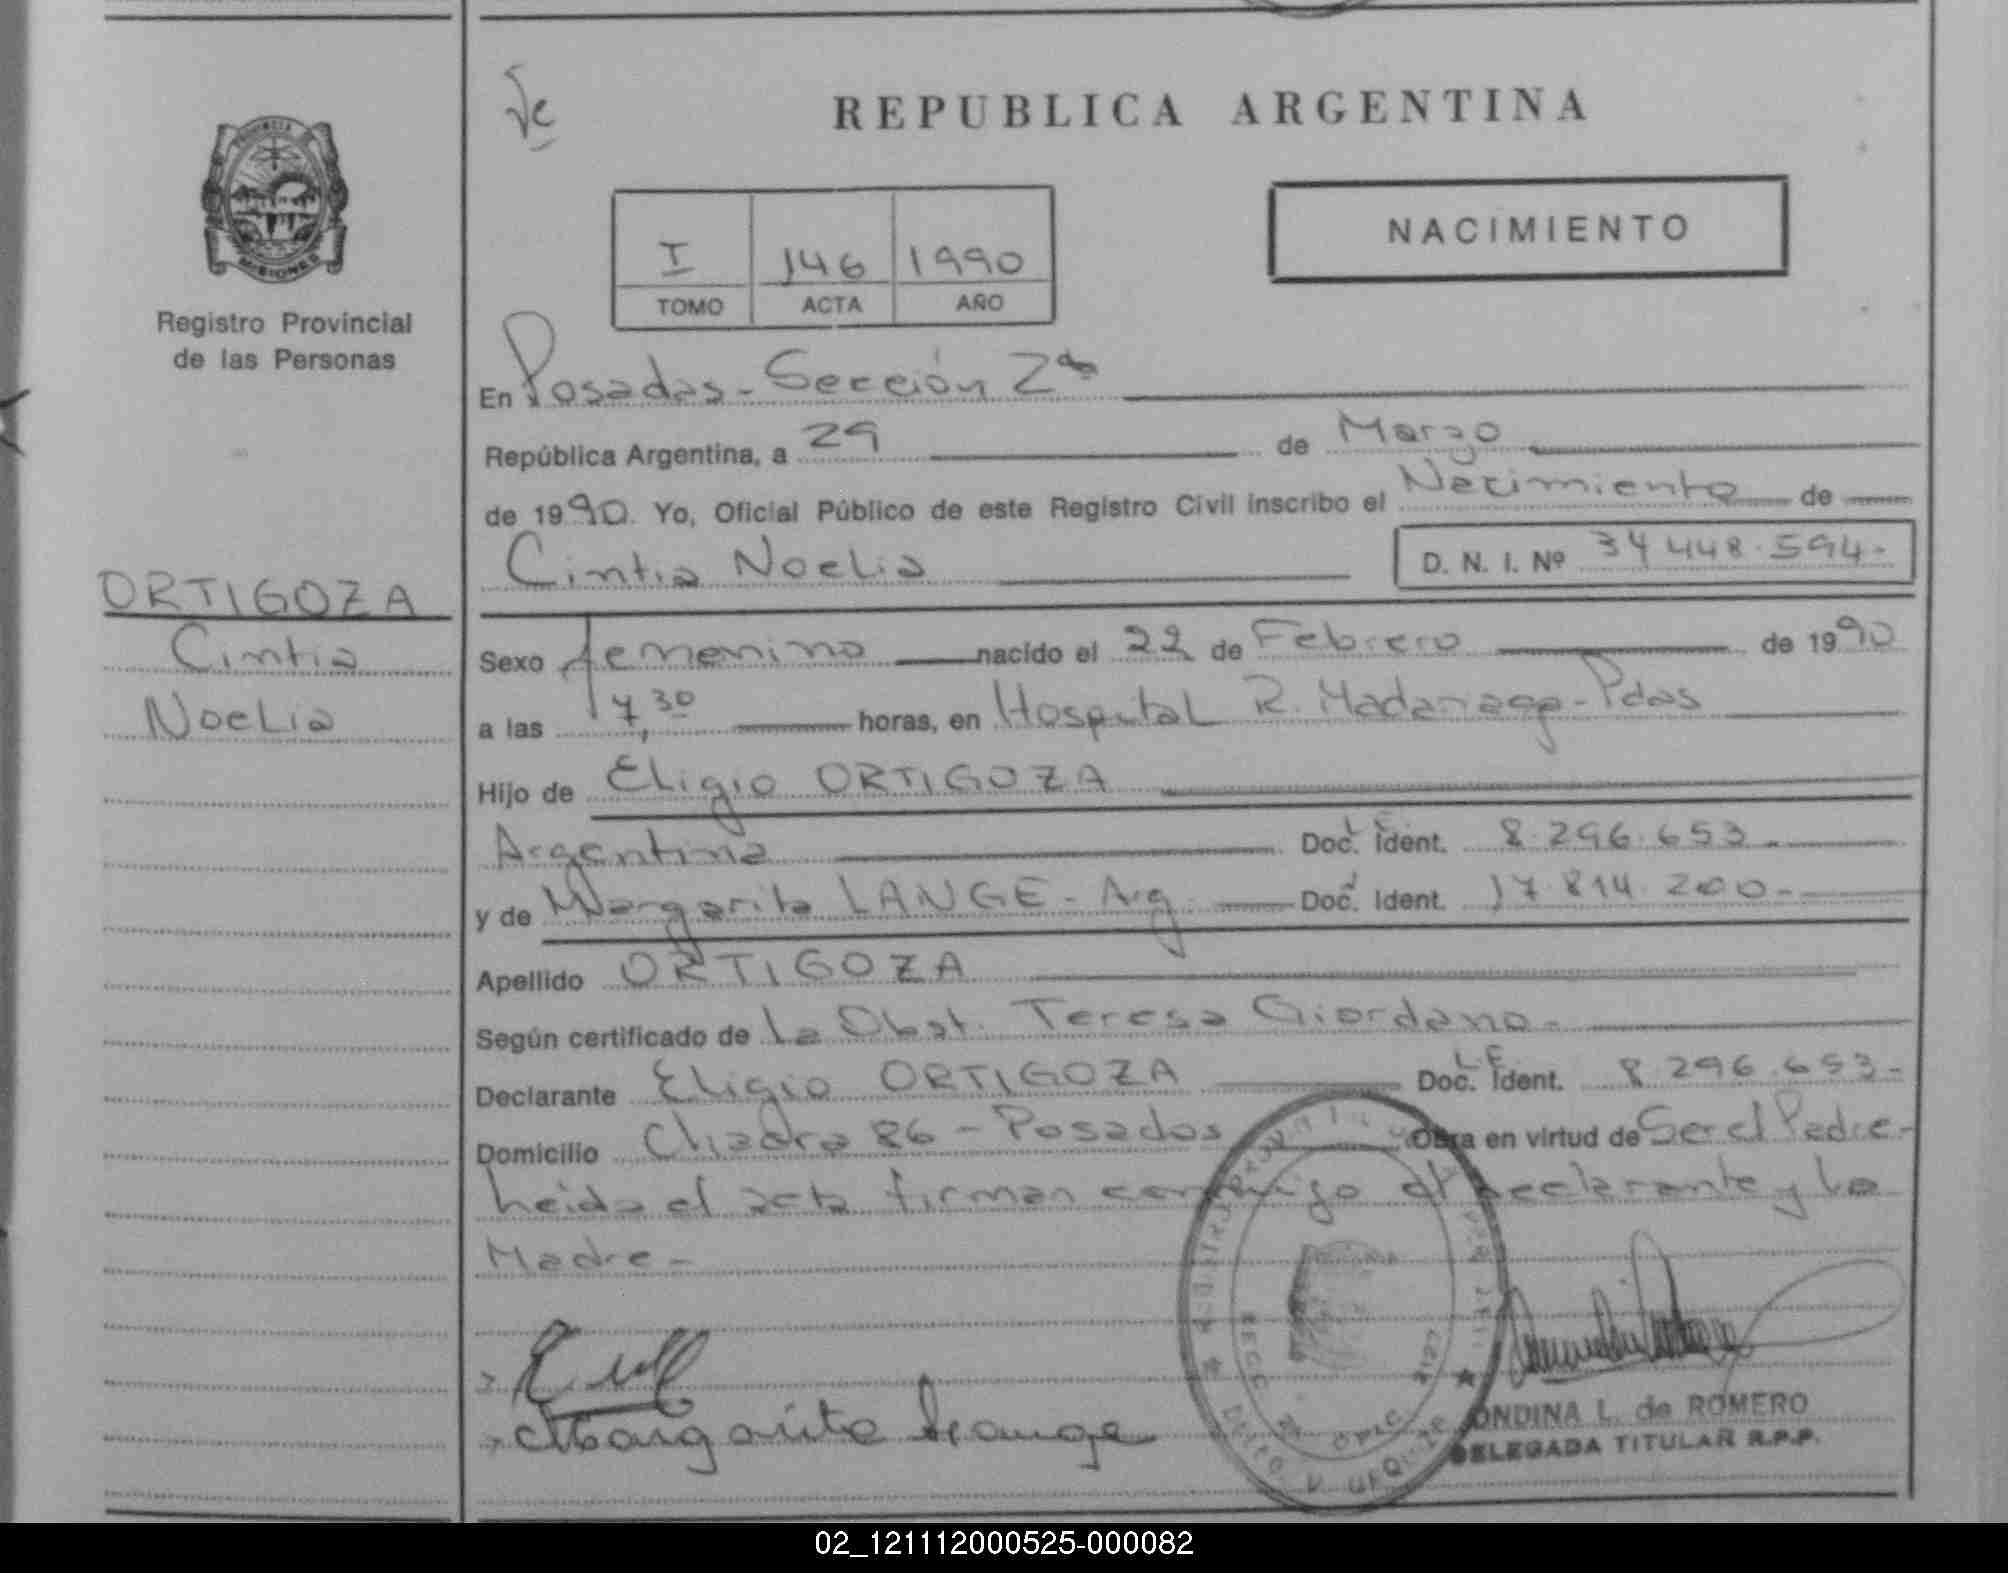 REPUBLICA ARGENTINA
PROVINCIA
MISIONES
Registro Provincial
de las Personas
NACIMIENTO
I 146 1990
TOMO ACTA AÑO
En Posadas - Sección 2da
República Argentina, a 29 de Marzo
de 1990. Yo, Oficial Público de este Registro Civil inscribo el Nacimiento de
Cintia Noelia D. N. I. Nº 34 448.594-
ORTIGOZA
Cintia
Noelia
Sexo femenino nacido el 22 de Febrero de 1990
a las 7,30 horas, en Hospital R. Madariaga - Pdas
Hijo de Eligio ORTIGOZA
Argentina Doc. Ident. L.E. 8.296.653.-
y de Margarita LANGE - Arg. Doc. Ident. 17.814.200-
Apellido ORTIGOZA
Según certificado de La Obst. Teresa Giordano-
Declarante Eligio ORTIGOZA Doc. Ident. L.E. 8.296.653-
Domicilio 86 - Posadas Obra en virtud de Ser el Padre-
Leida el acta firman conmigo el declarante y la
Madre-
Margarita Lange
ONDINA L. de ROMERO
DELEGADA TITULAR R.P.P.
02_121112000525-000082